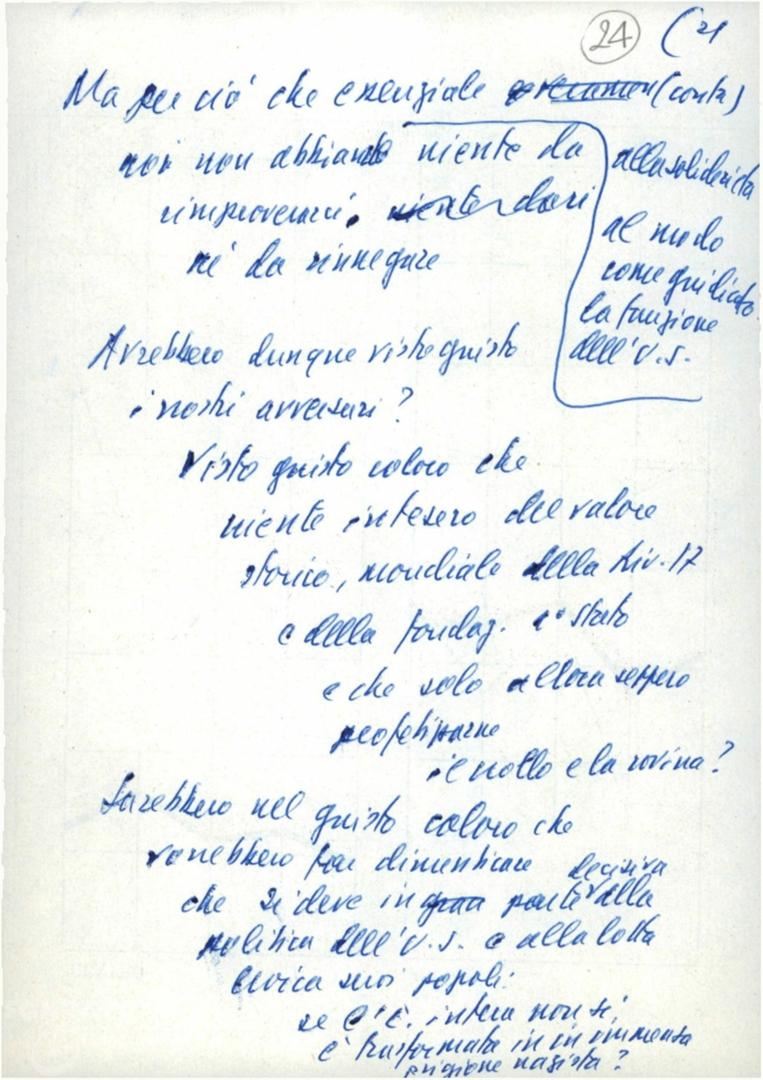 24 (21
Ma per ciò che essenziale (conta)
noi non abbiamo niente da
rimproverarci, niente dari
né da rinnegare
alla solidarietà
al modo
come giudicato
la funzione
dell'U.S.
Avrebbero dunque visto giusto
i nostri avversari?
Visto giusto coloro che
niente intesero del valore
storico, mondiale della Riv. 17
e della fondaz. 1° Stato
e che solo allora seppero
profetizzarne
il crollo e la rovina?
Sarebbero nel giusto coloro che
vorrebbero far dimenticare
che si deve in gran parte decisiva alla
politica dell'U.S. e alla lotta
eroica suoi popoli:
se l'E. intera non si
è trasformata in immensa
prigione nazista?